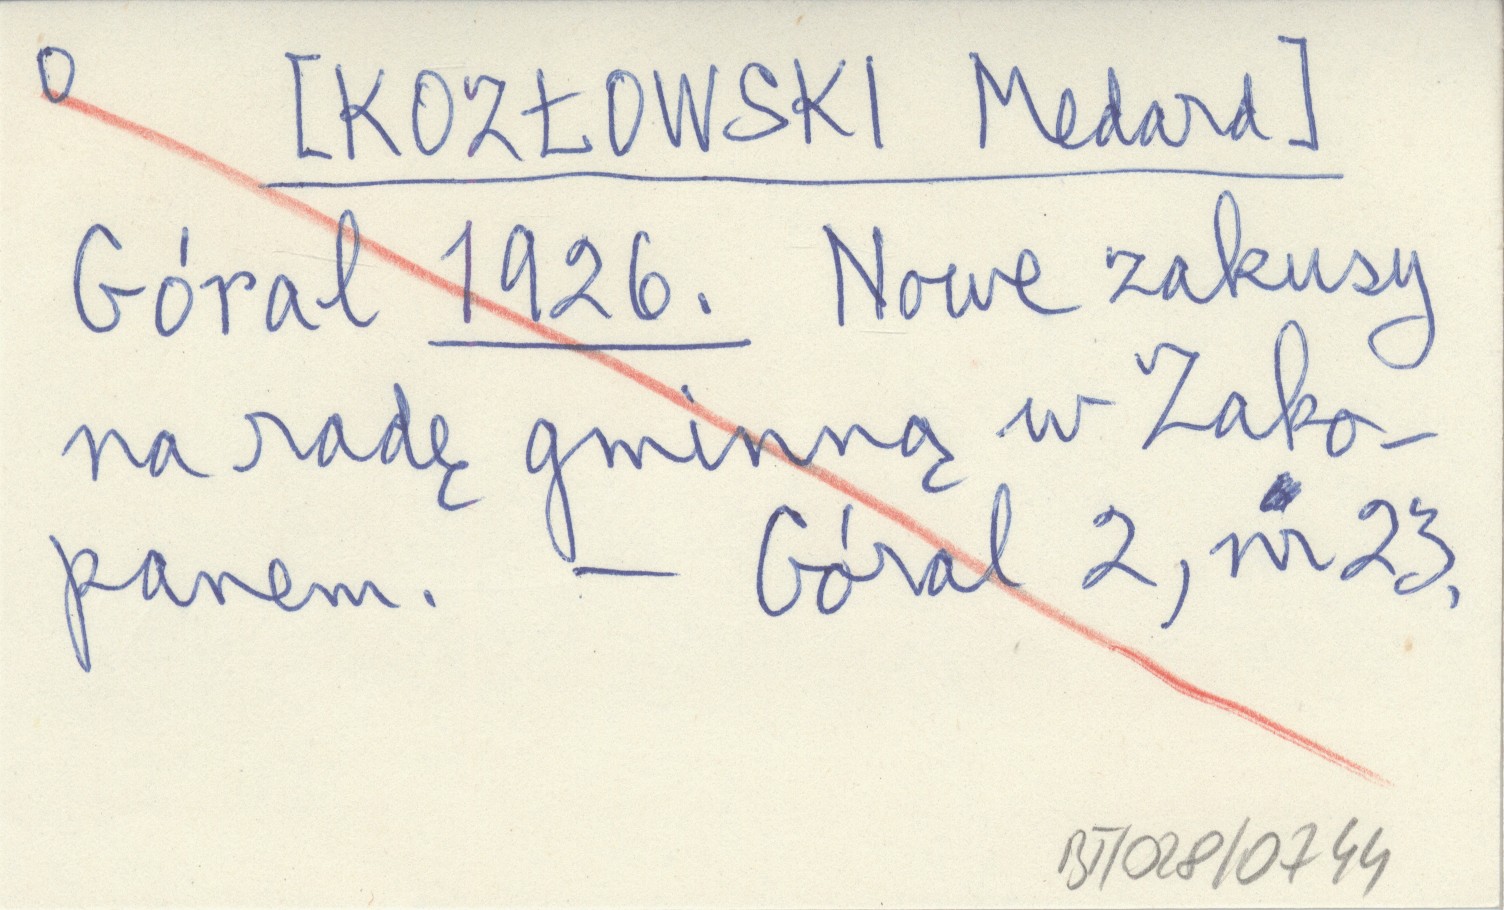 O [KOZŁOWSKI Medard]
Góral 1926. Nowe zakusy
na radę gminną w Zako-
panem. — Góral 2, nr 23,
BT/028/0744